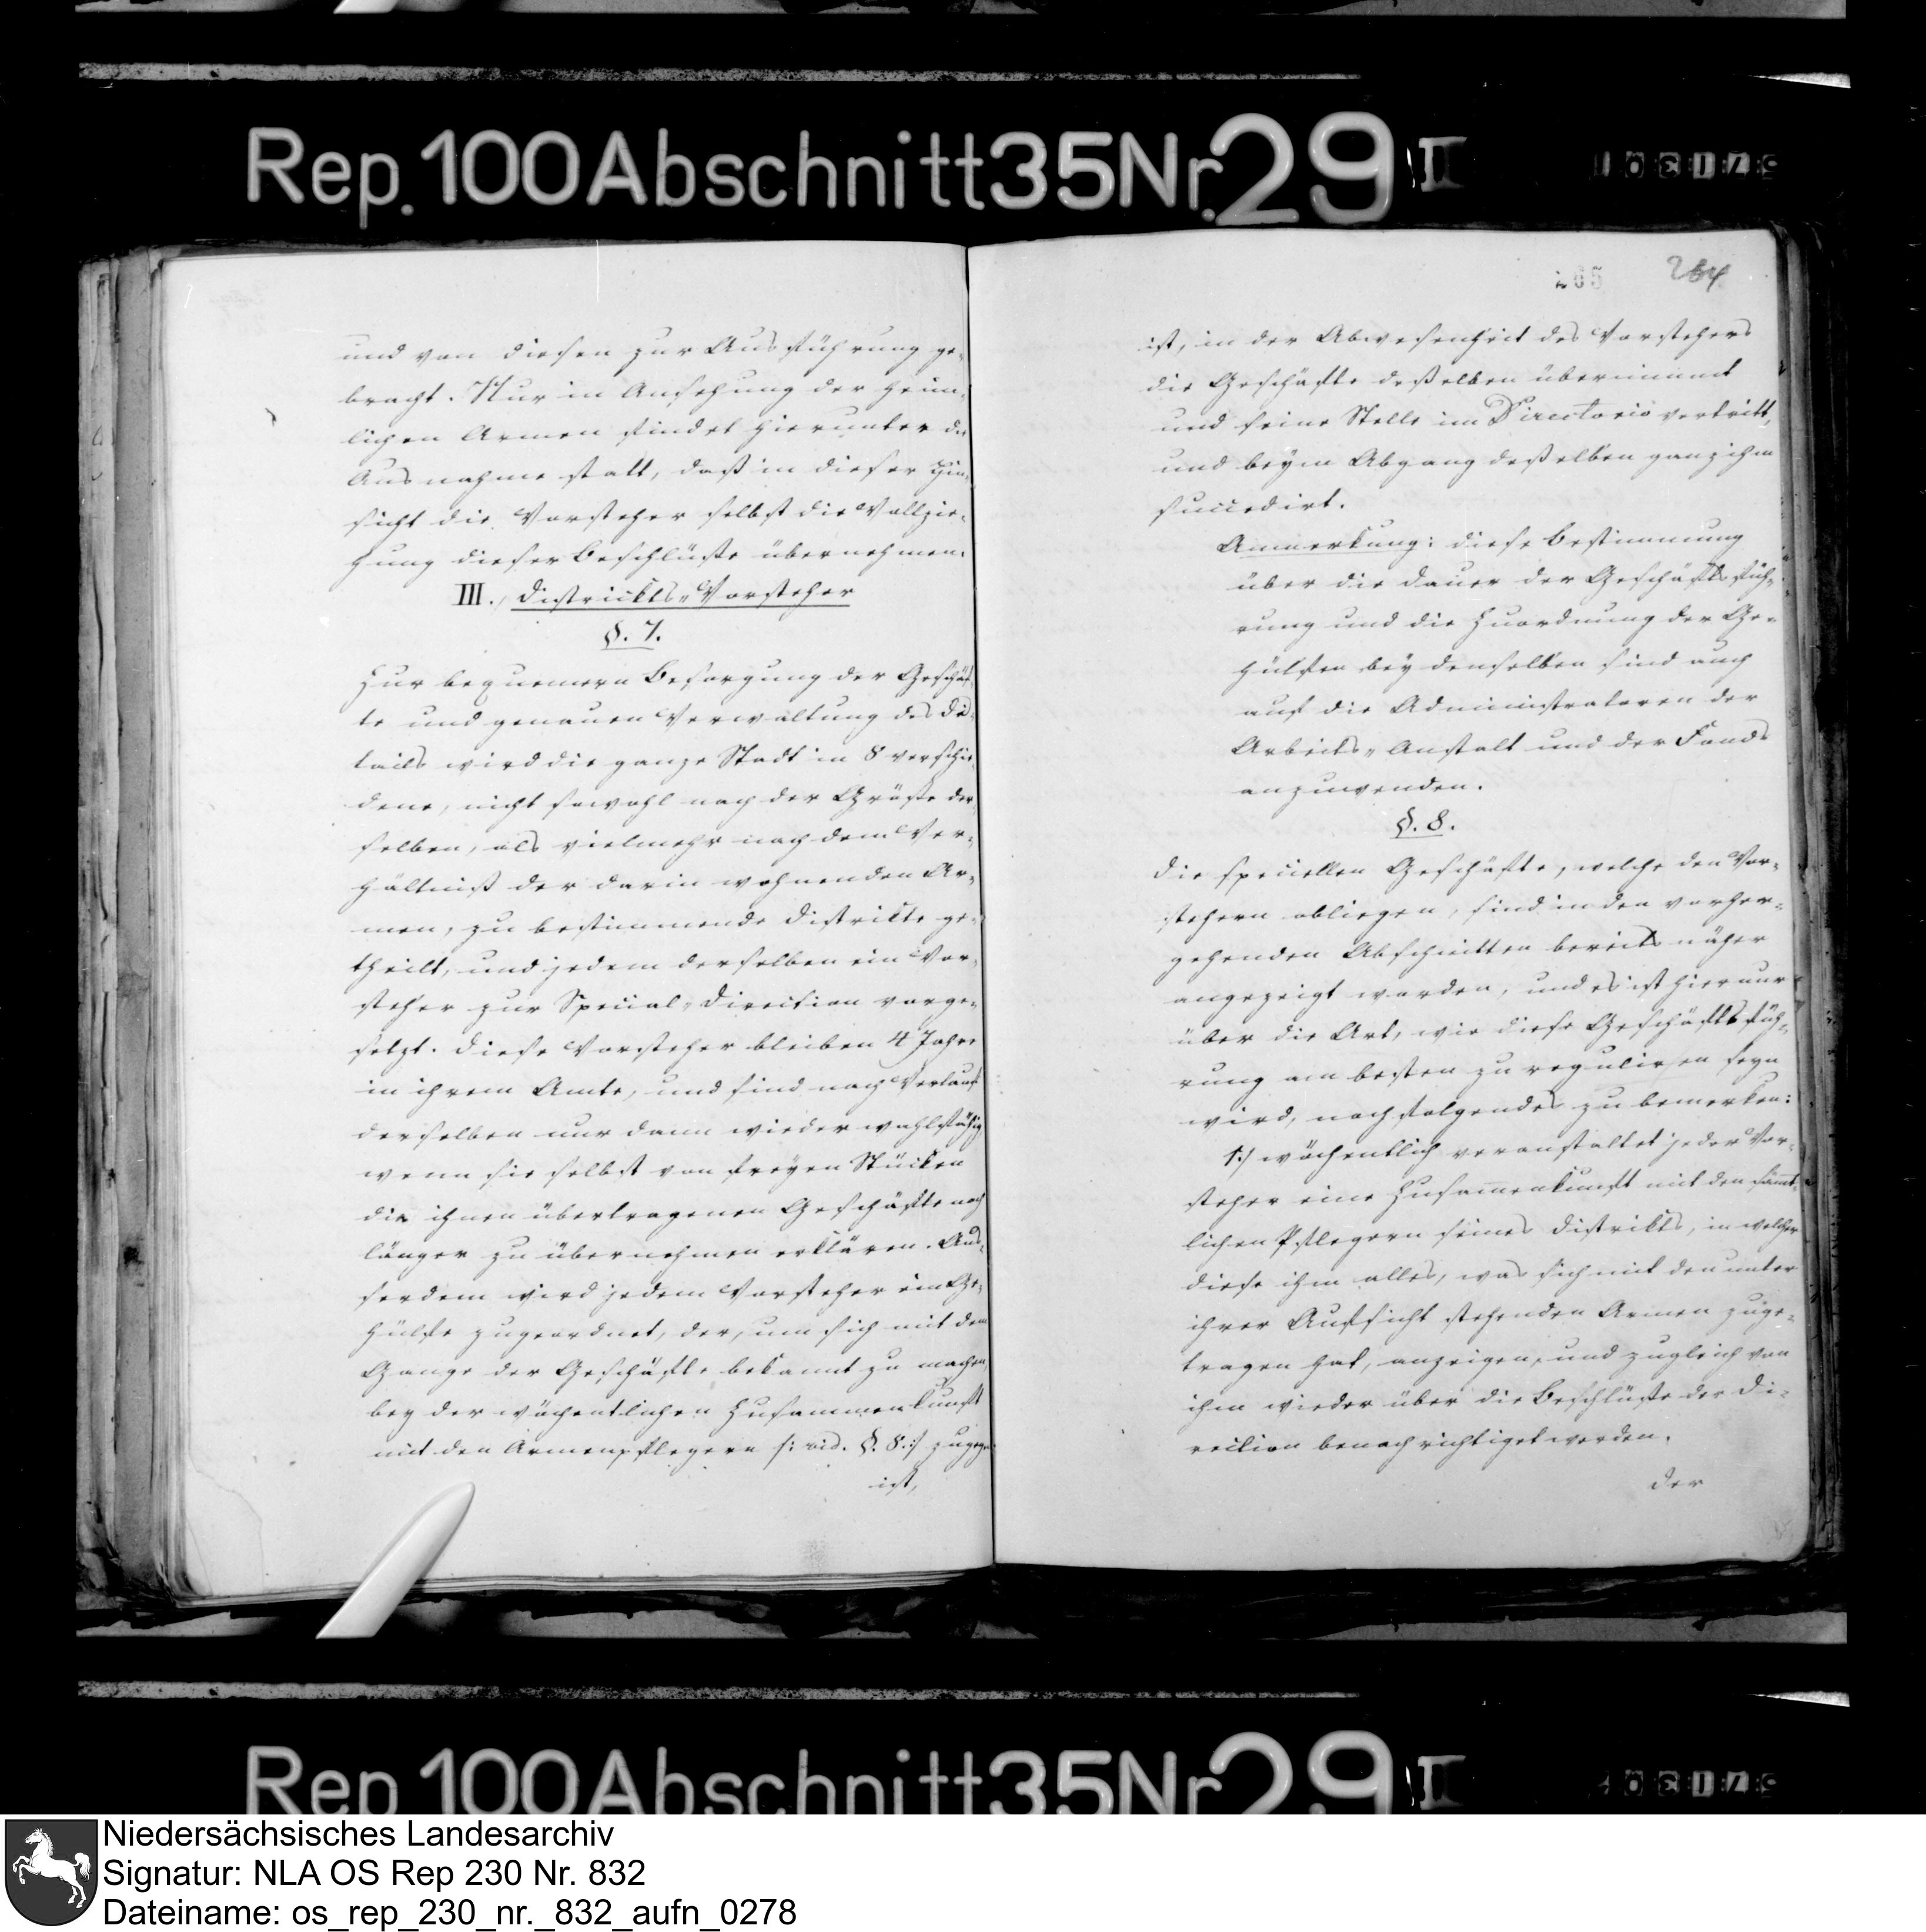 Rep. 100 Abschnitt 35 Nr. 29 I
und von diesen zur Ausführung ge-
bracht. Nur in Ansehung der heim-
lichen Armen findet hierunter die
Ausnahme statt, daß in dieser Hin-
sicht die Vorsteher selbst die Vollzie-
hung dieser Beschlüsse übernehmen.
III., Districkts-Vorsteher
§. 7.
Zur bequemern Besorgung der Geschäf-
te und genauen Verwaltung des De-
tails wird die ganze Stadt in 8 verschie-
dene, nicht sowohl nach der Größe der-
selben, als vielmehr nach dem Ver-
hältniß der darin wohnenden Ar-
men, zu bestimmende Distrikte ge-
theilt, und jedem derselben ein Vor-
steher zur Special-Direction vorge-
setzt. Diese Vorsteher bleiben 4 Jahre
in ihrem Amte, und sind nach Verlauf
derselben nur dann wieder wahlfähig,
wenn sie selbst von freyen Stücken
die ihnen übertragenen Geschäfte noch
länger zu übernehmen erklären. Aus-
serdem wird jedem Vorsteher ein Ge-
hülfe zugeordnet, der, um sich mit dem
Gange der Geschäfte bekannt zu machen,
bey der wöchentlichen Zusammenkunft
mit den Armenpflegern /: vid. §. 8 :/ zugegen
ist,
265 264
ist, in der Abwesenheit des Vorstehers
die Geschäfte deßelben übernimmt
und seine Stelle im Directorio vertritt,
und beym Abgang deßelben ganz ihm
succedirt.
Anmerkung: diese Bestimmung
über die Dauer der Geschäftsfüh-
rung und die Zuordnung der Ge-
hülfen bey denselben sind auch
auf die Administratoren der
Arbeits-Anstalt und der Fonds
anzuwenden.
§. 8.
Die speciellen Geschäfte, welche den Vor-
stehern obliegen, sind in den vorher-
gehenden Abschnitten bereits näher
angezeigt worden, und es ist hier nur
über die Art, wie diese Geschäftsfüh-
rung am besten zu reguliren seyn
wird, nachfolgendes zu bemerken:
1:/ wöchentlich veranstaltet jeder Vor-
steher eine Zusamenkunft mit den sämt-
lichen Pflegern seines Distrikts, in welcher
diese ihm alles, was sich mit den unter
ihrer Aufsicht stehenden Armen zuge-
tragen hat, anzeigen, und zugleich von
ihm wieder über die Beschlüsse der Di-
rection benachrichtiget werden.
der
Rep 100 Abschnitt 35 Nr 29 I
Niedersächsisches Landesarchiv
Signatur: NLA OS Rep 230 Nr. 832
Dateiname: os_rep_230_nr._832_aufn_0278